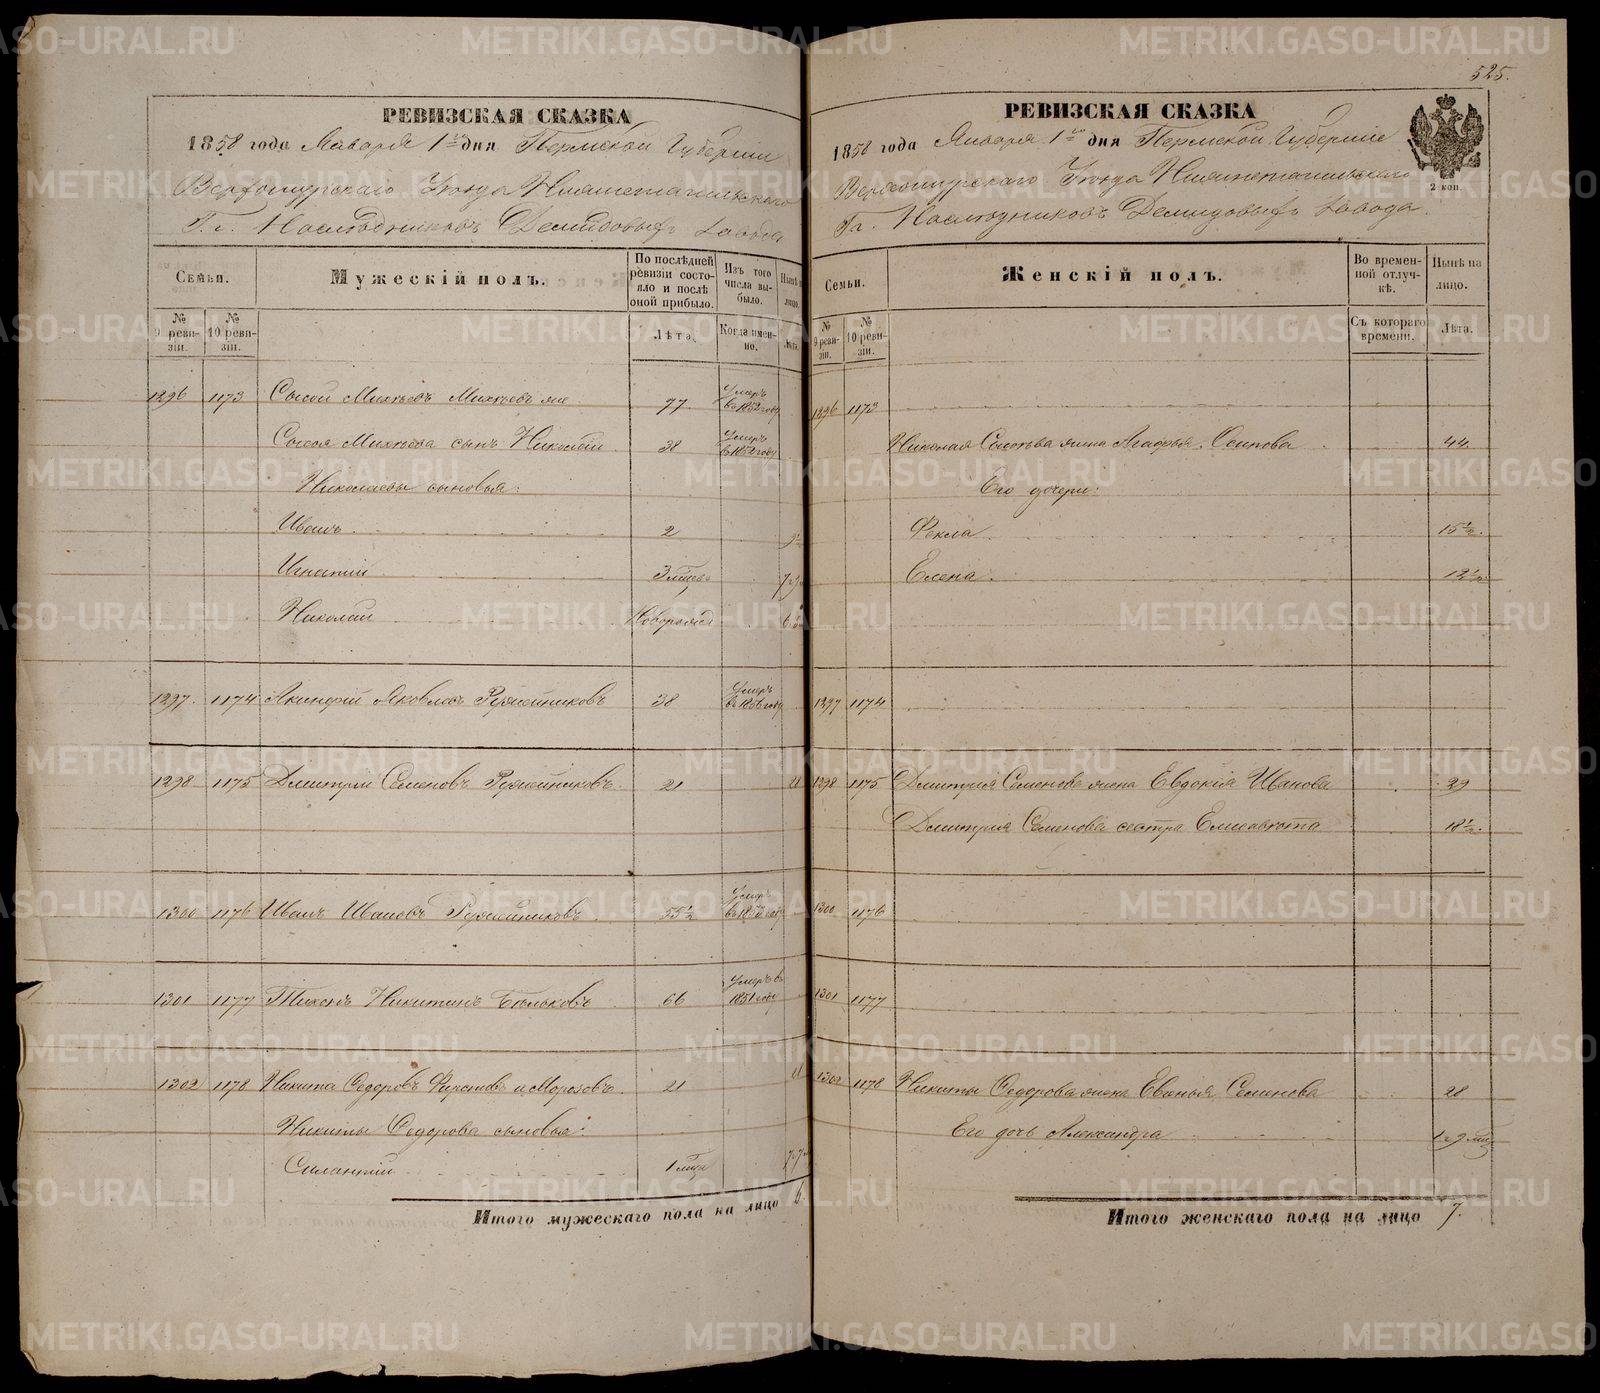 525.
РЕВИЗСКАЯ СКАЗКА
1858 года Января 1го дня Пермской Губерніи
Верхотурскаго Уѣзда Нижнетагильскаго
Гг. Наслѣдниковъ Демидовыхъ Завода
Семьи.
Мужескій полъ.
По послѣдней ревизіи состояло и послѣ оной прибыло.
Изъ того числа выбыло.
Нынѣ на лицо.
№ 9 ревизіи.
№ 10 ревизіи.
Лѣта.
Когда именно.
Лѣта.
1296 1173 Сысой Михѣевъ Михѣевъ же 77 Умеръ въ 1852 году
Сысоя Михѣева сынъ Николай 38 Умеръ въ 1852 году
Николаевы сыновья:
Иванъ 2
Игнатій
Николай Новорожд
1297. 1174 Акинфій Яковлевъ Ружейниковъ 38 Умеръ въ 1856 году
1298 1175 Дмитрій Семеновъ Ружейниковъ 21
1300 1176 Иванъ Ивановъ Ружейниковъ 55½ Умеръ
1301 1177 Тихонъ Никитинъ Бѣльковъ 66 Умеръ въ 1851 году
1302 1178 Никита Федоровъ и Морозовъ 21
Никиты Федорова сыновья:
Силантій
Итого мужескаго пола на лицо 6.
РЕВИЗСКАЯ СКАЗКА
1858 года Января 1го дня Пермской Губерніи
Верхотурскаго Уѣзда Нижнетагильскаго
Гг. Наслѣдниковъ Демидовыхъ Завода.
2 коп.
Семьи.
Женскій полъ.
Во временной отлучкѣ.
Нынѣ на лицо.
№ 9 ревизіи.
№ 10 ревизіи.
Съ котораго времени.
Лѣта.
1296 1173
Николая Сысоева жена Агафья Осипова 44
Его дочери:
Фекла 15½.
Елена 12½
1297 1174
1298 1175 Дмитрія Семенова жена Евдокія Иванова 29
Дмитрія Семенова сестра Елисавета 18½.
1300 1176
1301 1177
1302 1178 Никиты Федорова жена Евгенья Семенова 28
Его дочь Александра
Итого женскаго пола на лицо 7.
METRIKI.GASO-URAL.RU